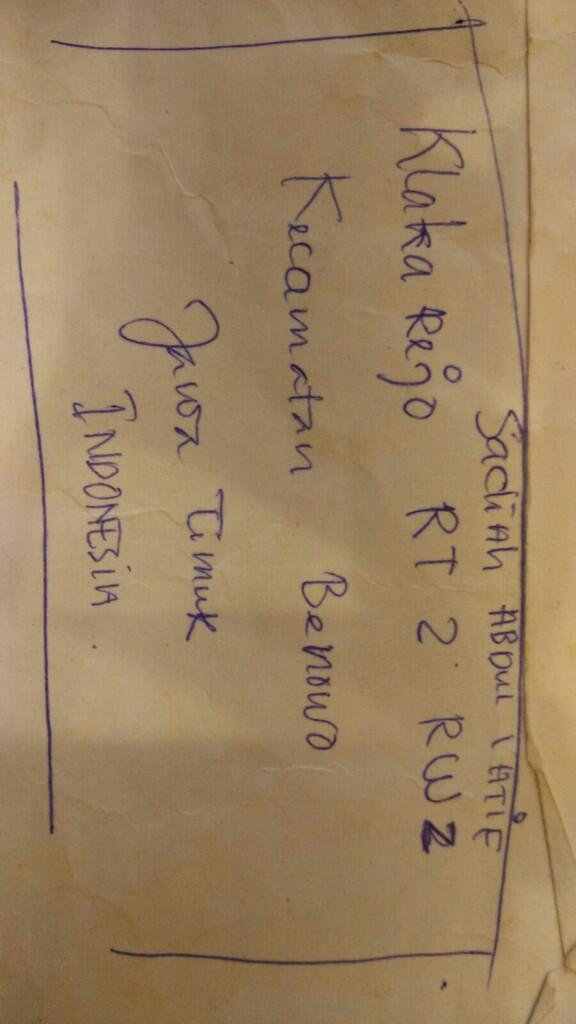 Sadiah ABDUL LATIF
Klaka Rejo RT 2 RW 2
Kecamatan Benowo
Jawa Timur
INDONESIA